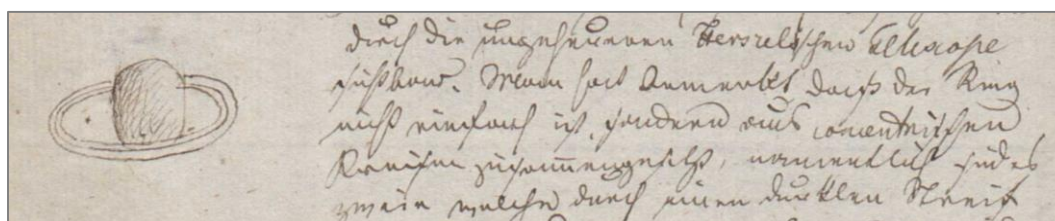 durch die ungeheueren Herschelschen Telescope
sichtbar. Man hat bemerkt daß der Ring
nicht einfach ist, sondern aus concentrischen
Kreisen zusammengesetzt, namentlich sind es
zwei welche durch einen dunklen Streif